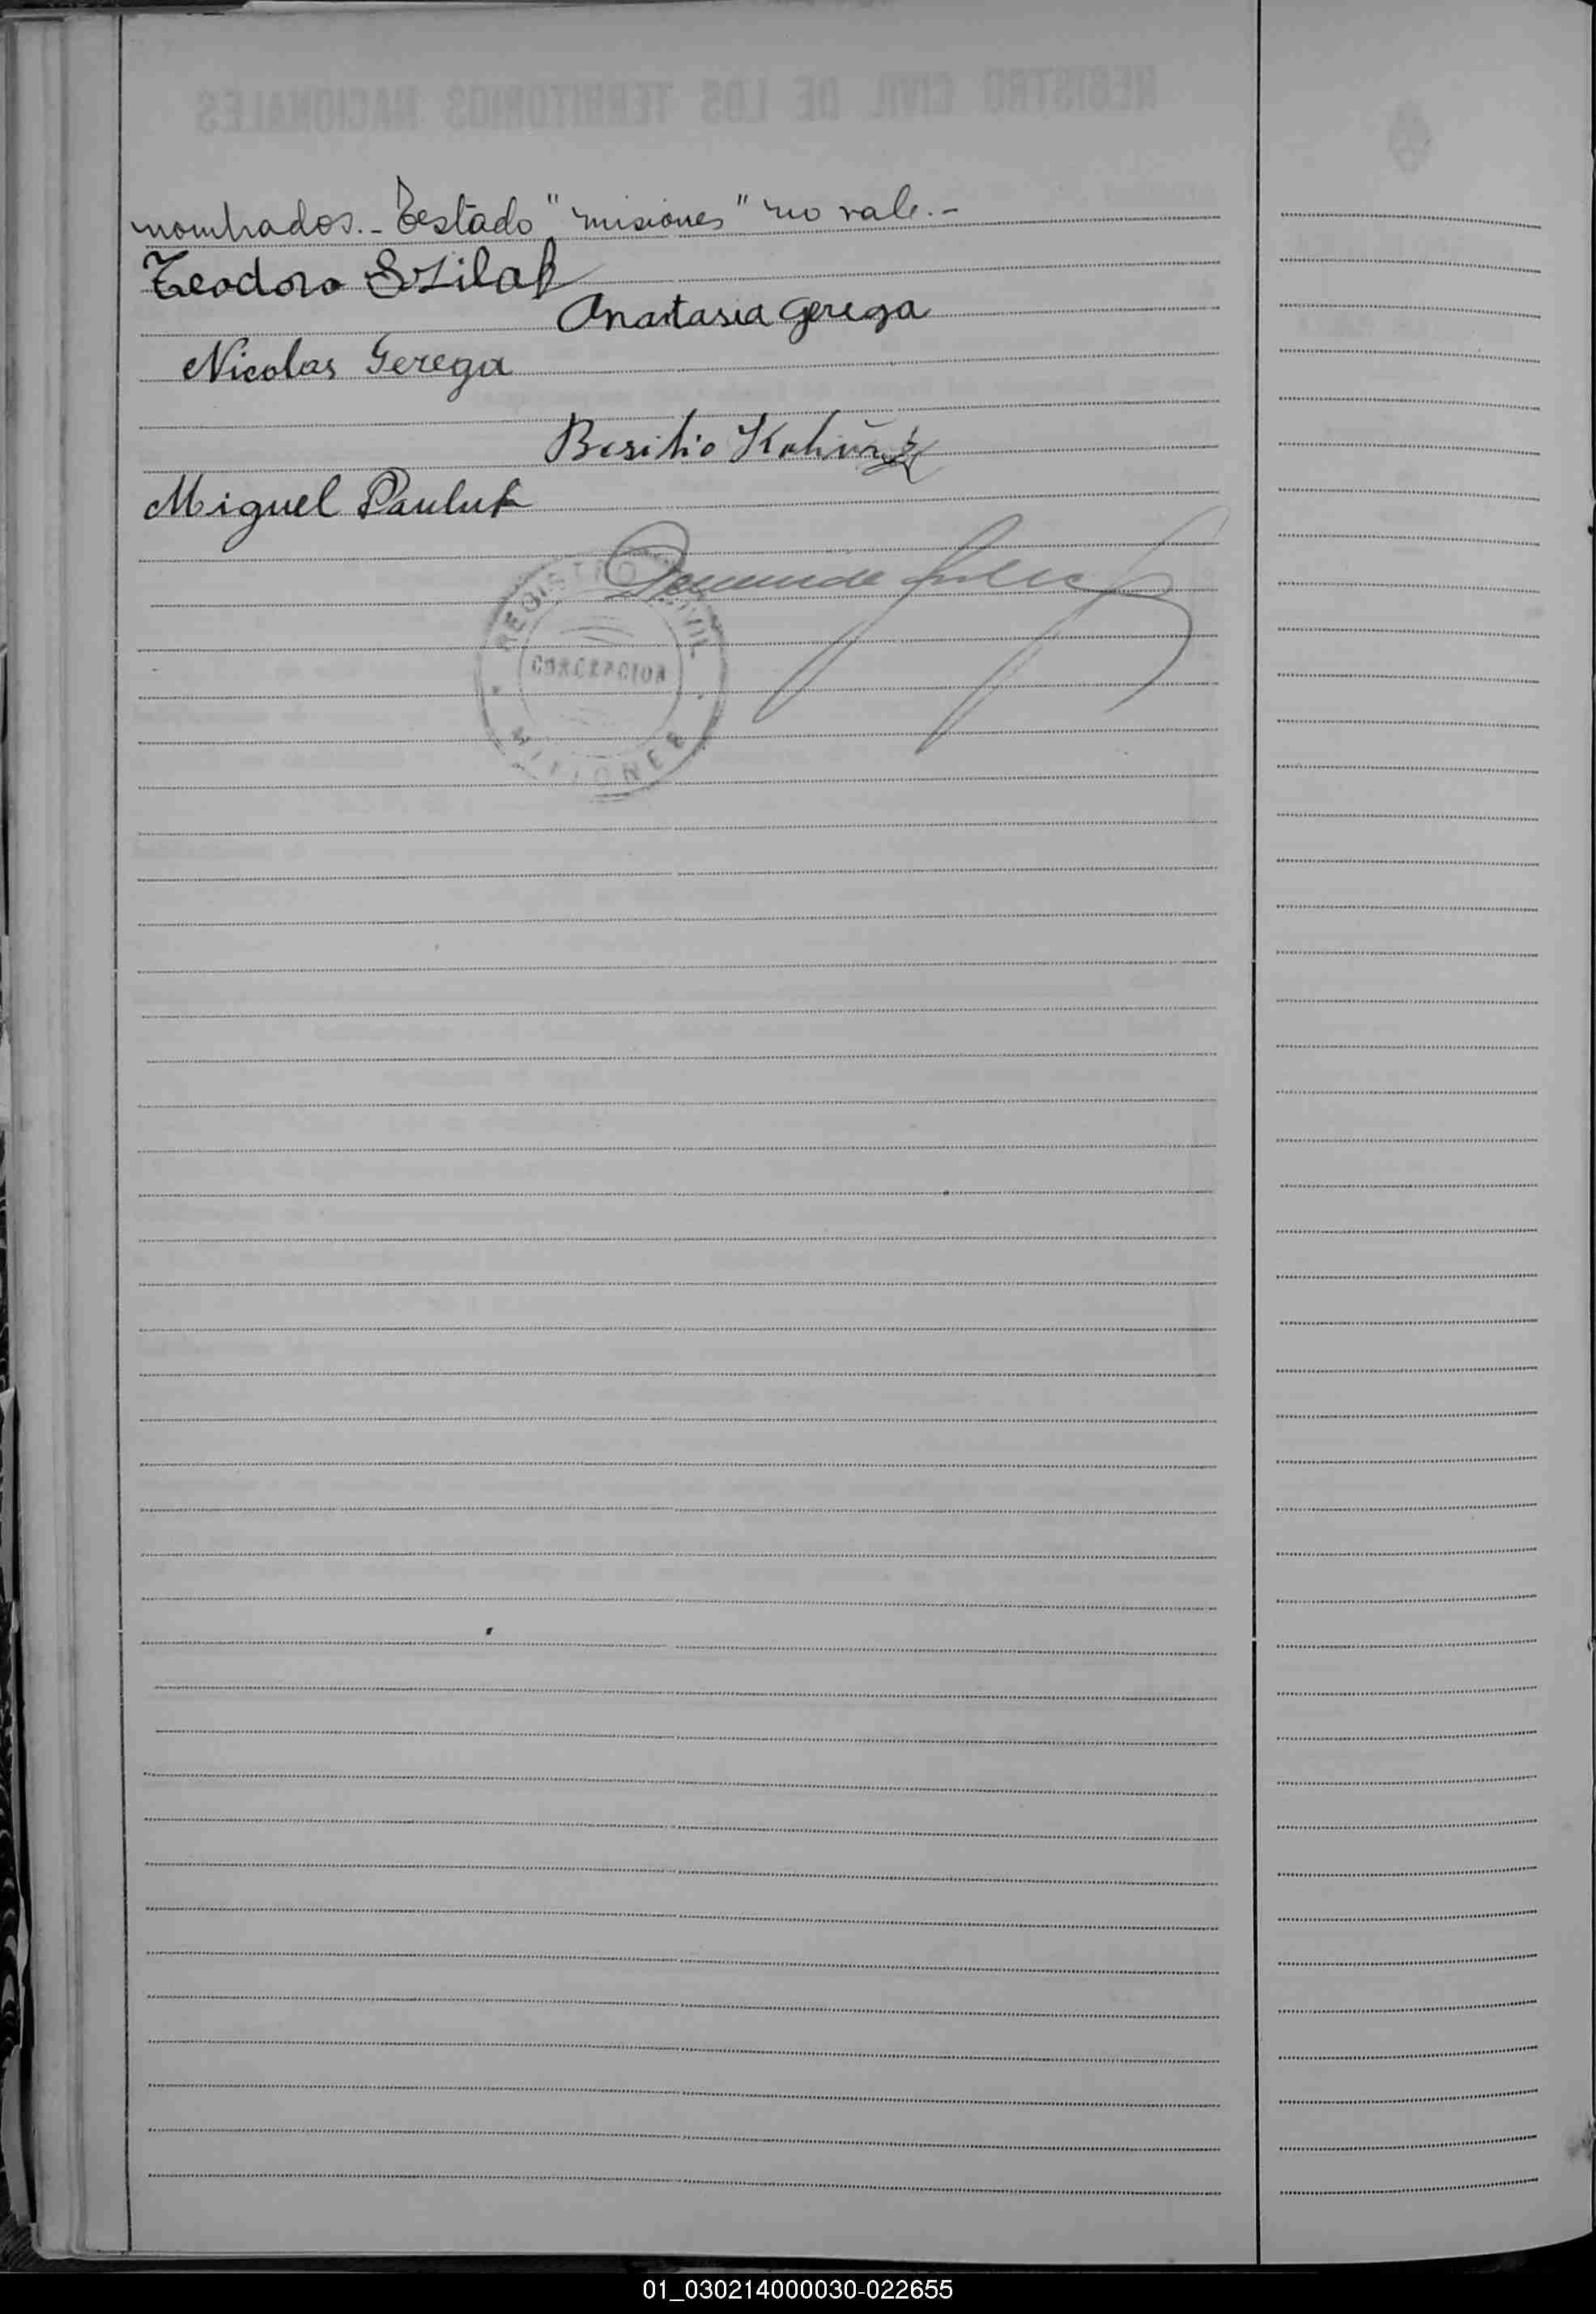 nombrados.- Testado "misiones" no vale.-
Teodoro Szilak
Anastasia Gerega
Nicolas Gerega
Basilio
Miguel Pauluk
REGISTRO CIVIL
CONCEPCION
MISIONES
01_030214000030-022655